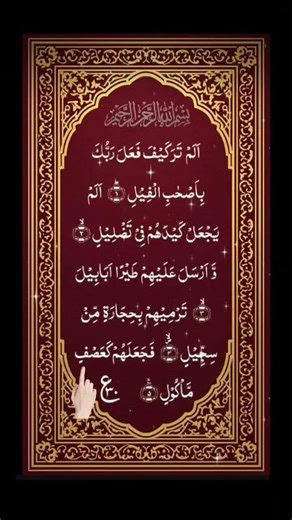 بِسْمِ اللهِ الرَّحْمٰنِ الرَّحِيْمِ
اَلَمْ تَرَ كَيْفَ فَعَلَ رَبُّكَ
بِاَصْحٰبِ الْفِيْلِ ۝١ اَلَمْ
يَجْعَلْ كَيْدَهُمْ فِيْ تَضْلِيْلٍ ۝٢
وَّ اَرْسَلَ عَلَيْهِمْ طَيْرًا اَبَابِيْلَ
۝٣ تَرْمِيْهِمْ بِحِجَارَةٍ مِّنْ
سِجِّيْلٍ ۝٤ فَجَعَلَهُمْ كَعَصْفٍ
مَّاْكُوْلٍ ۝٥ ع